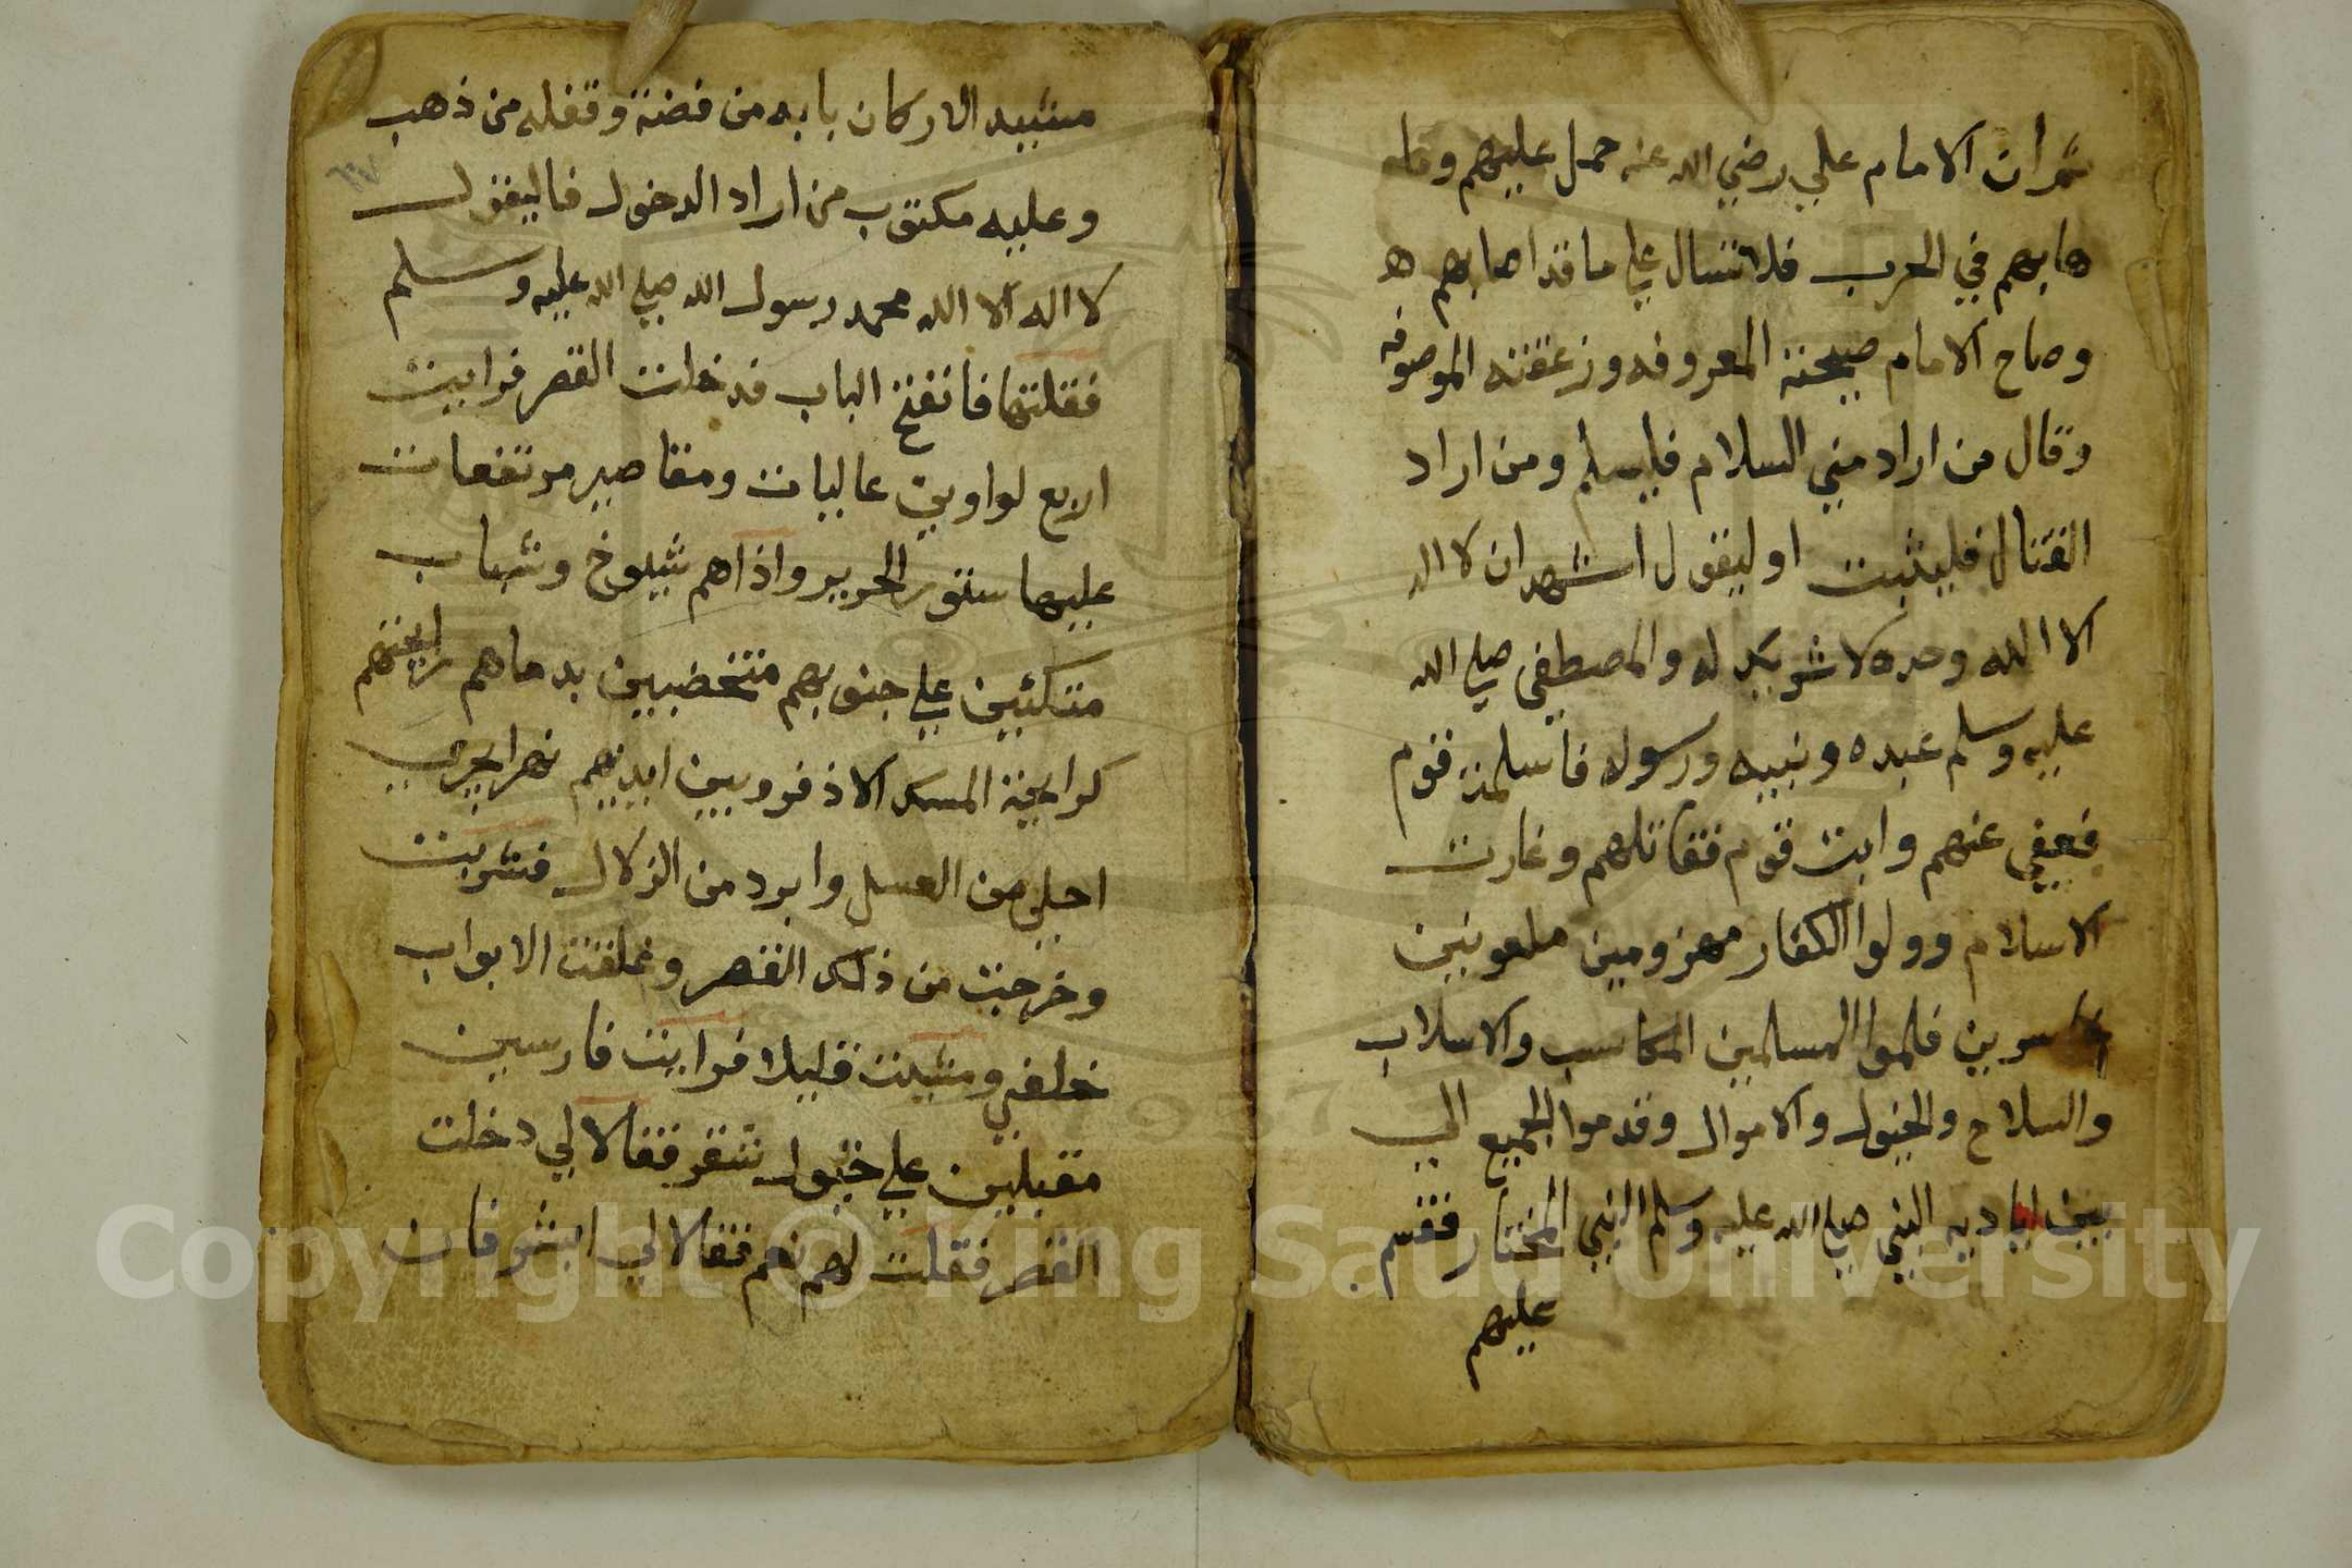 ثمران الامام علي رضي الله عنه حمل عليهم وقا
هابهم في الحرب فلا تسال علي ما قد اصابهم ه
وصاح الامام صيحته المعروفه وزعقته الموصوفه
وقال من اراد مني السلام فليسلم ومن اراد
القتال فليثبت او ليقول اشهد ان لا اله
الا الله وحده لا شريك له والمصطفي صلي الله
عليه وسلم عبده ونبيه ورسوله فاسلمت قوم
فعفي عنهم وابت قوم فقاتلهم وغارت
الاسلام وولوا الكفار مهزومين ملعونين
فلموا المسلمين المكاسب والاسلاب
والسلاح والخيول والاموال وقدموا الجميع الي
بين اياديه النبي صلي الله عليه وسلم النبي المختار فقسم
عليهم
مشيد الاركان بابه من فضة وقفله من ذهب
وعليه مكتوب من اراد الدخول فاليقول
لا اله الا الله محمد رسول الله صلي الله عليه وسلم
فقلتها فانفتح الباب فدخلت القصر فرايت
اربع لواوين عاليات ومقاصير مرتفعات
عليها ستور الحرير واذاهم شيوخ وشباب
متكئين علي جنوبهم متخضبين بدماهم رايحتهم
كرايحة المسك الاذفر وبين ايديهم نهر ايجري
احلي من العسل وابرد من الزلال فشربت
وخرجت من ذلك القصر وغلقت الابواب
خلفي ومشيت قليلا فرايت فارسين
مقبلين علي خيول شقر فقالا لي دخلت
القصر فقلت لهم نعم فقالا لي ابشر فان
Copyright © King Saud University